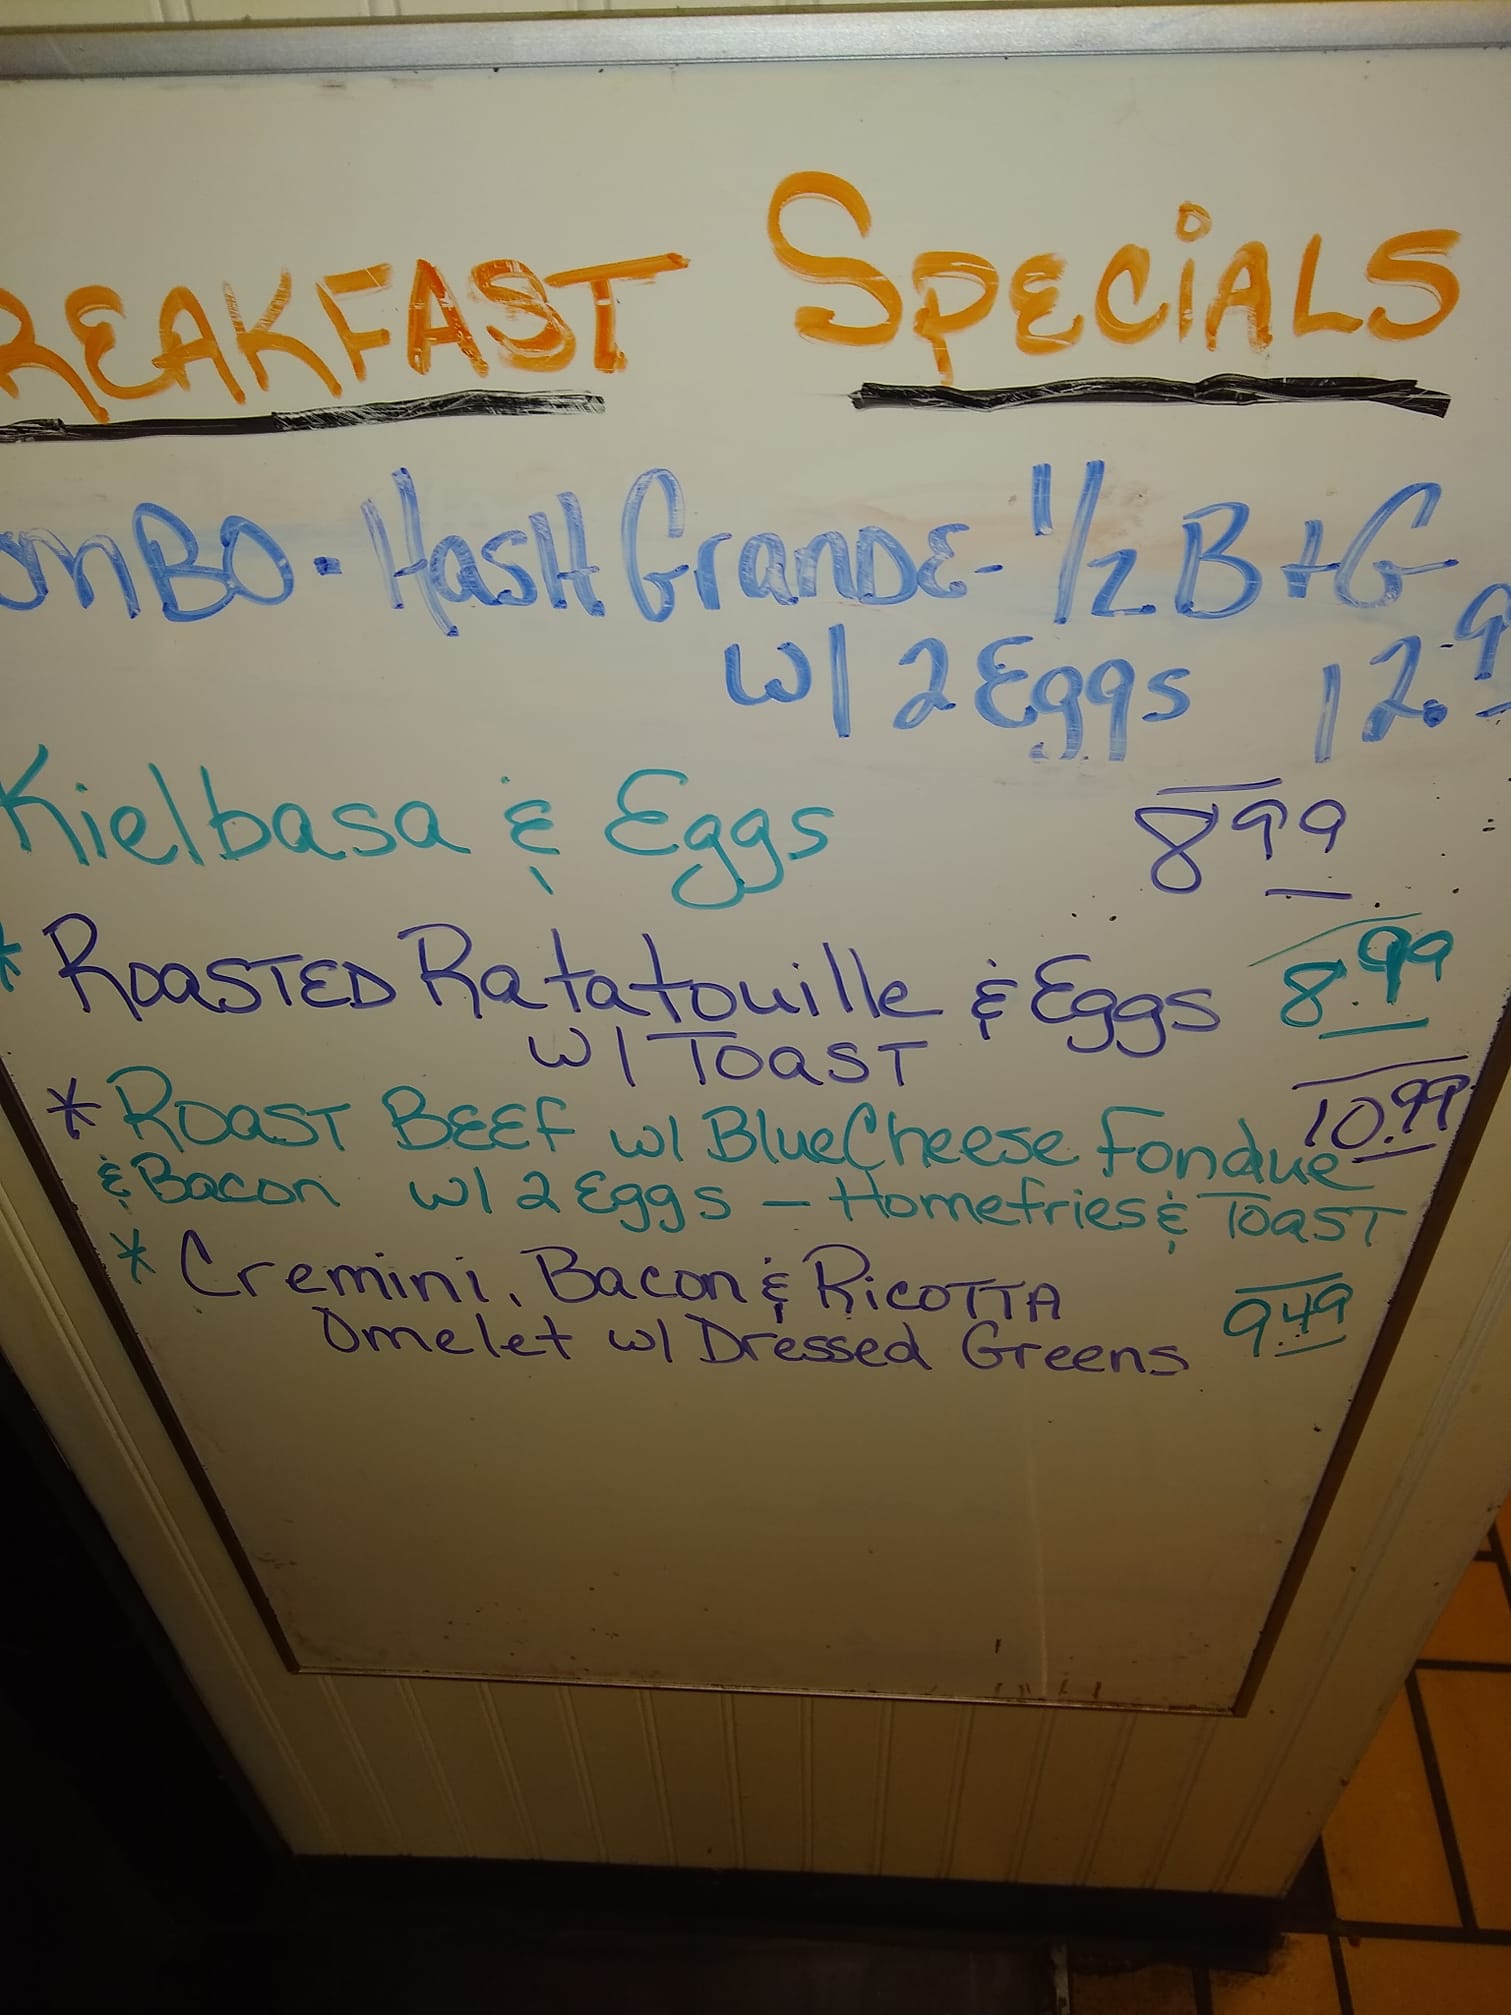 REAKFAST SPECIALS
OMBO · HASH GRANDE - 1/2 B + G
w/ 2 Eggs 12.9
Kielbasa & Eggs 8 99
* ROASTED Ratatouille & Eggs 8.99
w/ TOAST
* ROAST BEEF w/ BlueCheese Fondue 10.99
& Bacon w/ 2 Eggs - Homefries & TOAST
* Cremini, Bacon & RICOTTA
Omelet w/ Dressed Greens 9.49